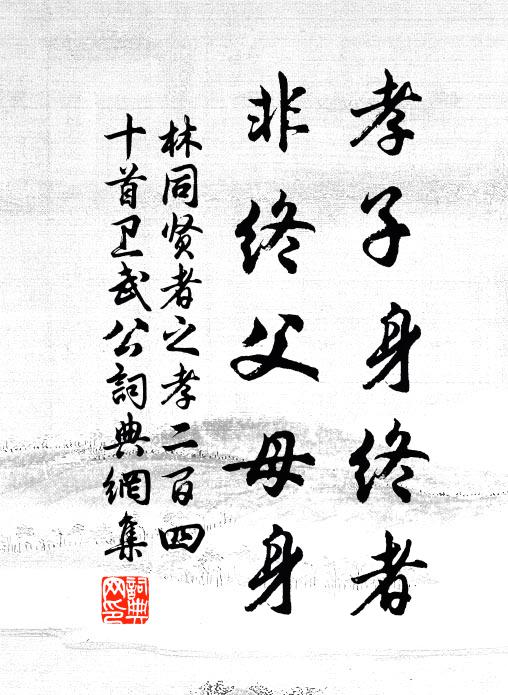 孝子身终者
非终父母身
林同贤者之孝二百四
十首卫武公詞典網集
詞典
网印